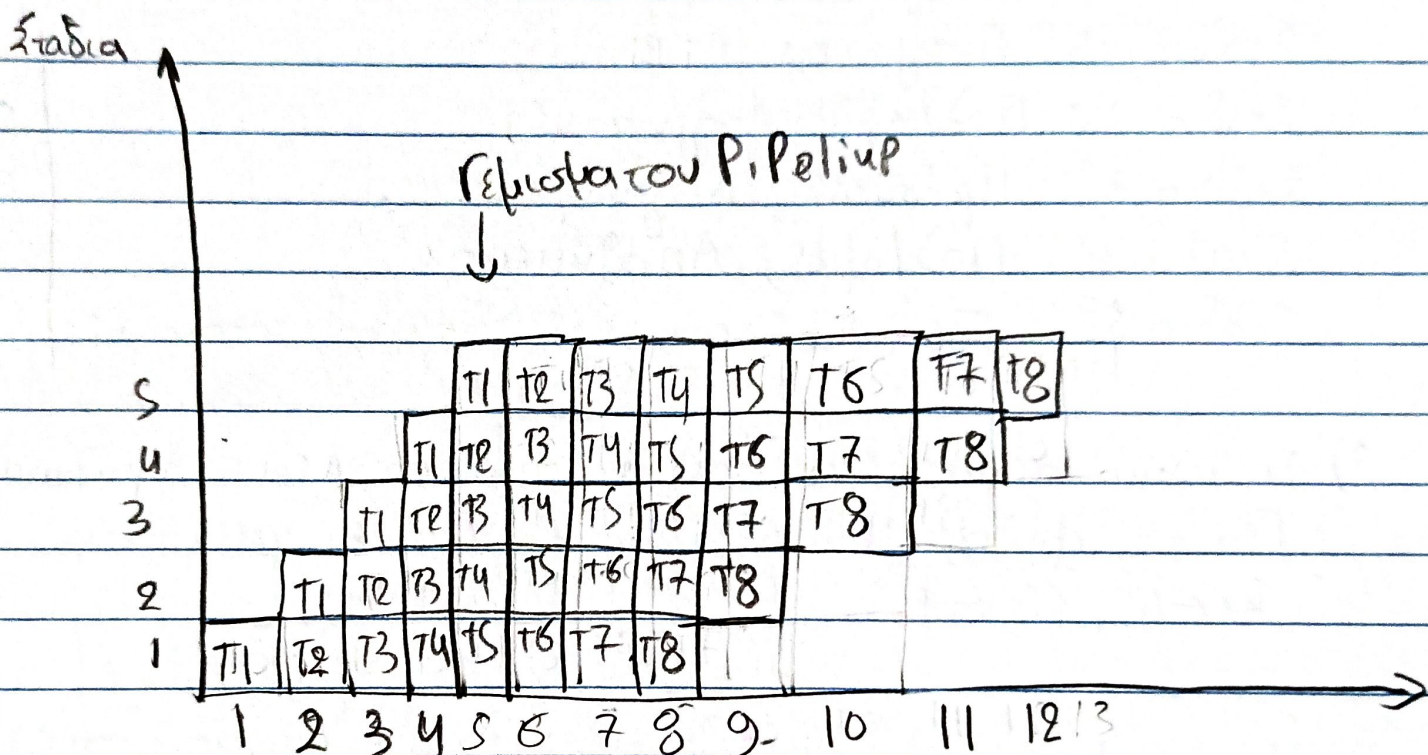 Στάδια
Γέμισμα του PiPeline
5 T1 T2 T3 T4 T5 T6 T7 T8
4 T1 T2 T3 T4 T5 T6 T7 T8
3 T1 T2 T3 T4 T5 T6 T7 T8
2 T1 T2 T3 T4 T5 T6 T7 T8
1 T1 T2 T3 T4 T5 T6 T7 T8
1 2 3 4 5 6 7 8 9 10 11 12 13